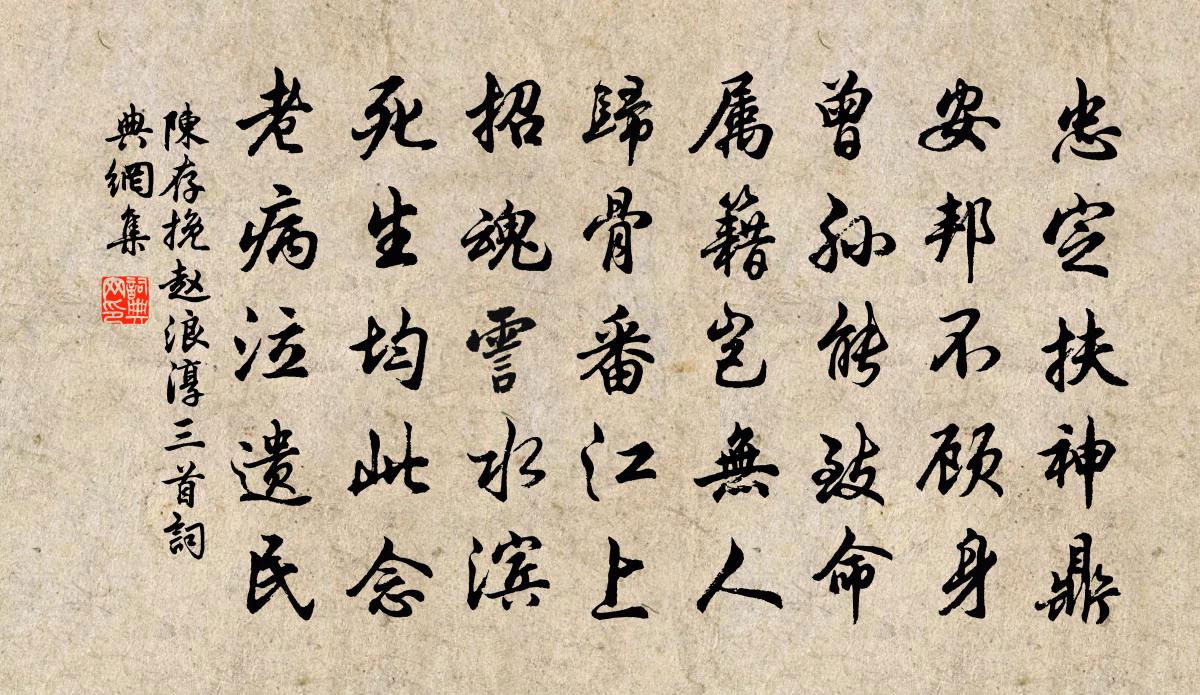 忠定扶神鼎
安邦不顾身
曾孙能致命
属籍岂無人
歸骨番江上
招魂霅水滨
死生均此念
老病泣遗民
陳存挽赵浪淳三首詞
典網集
詞典
网印